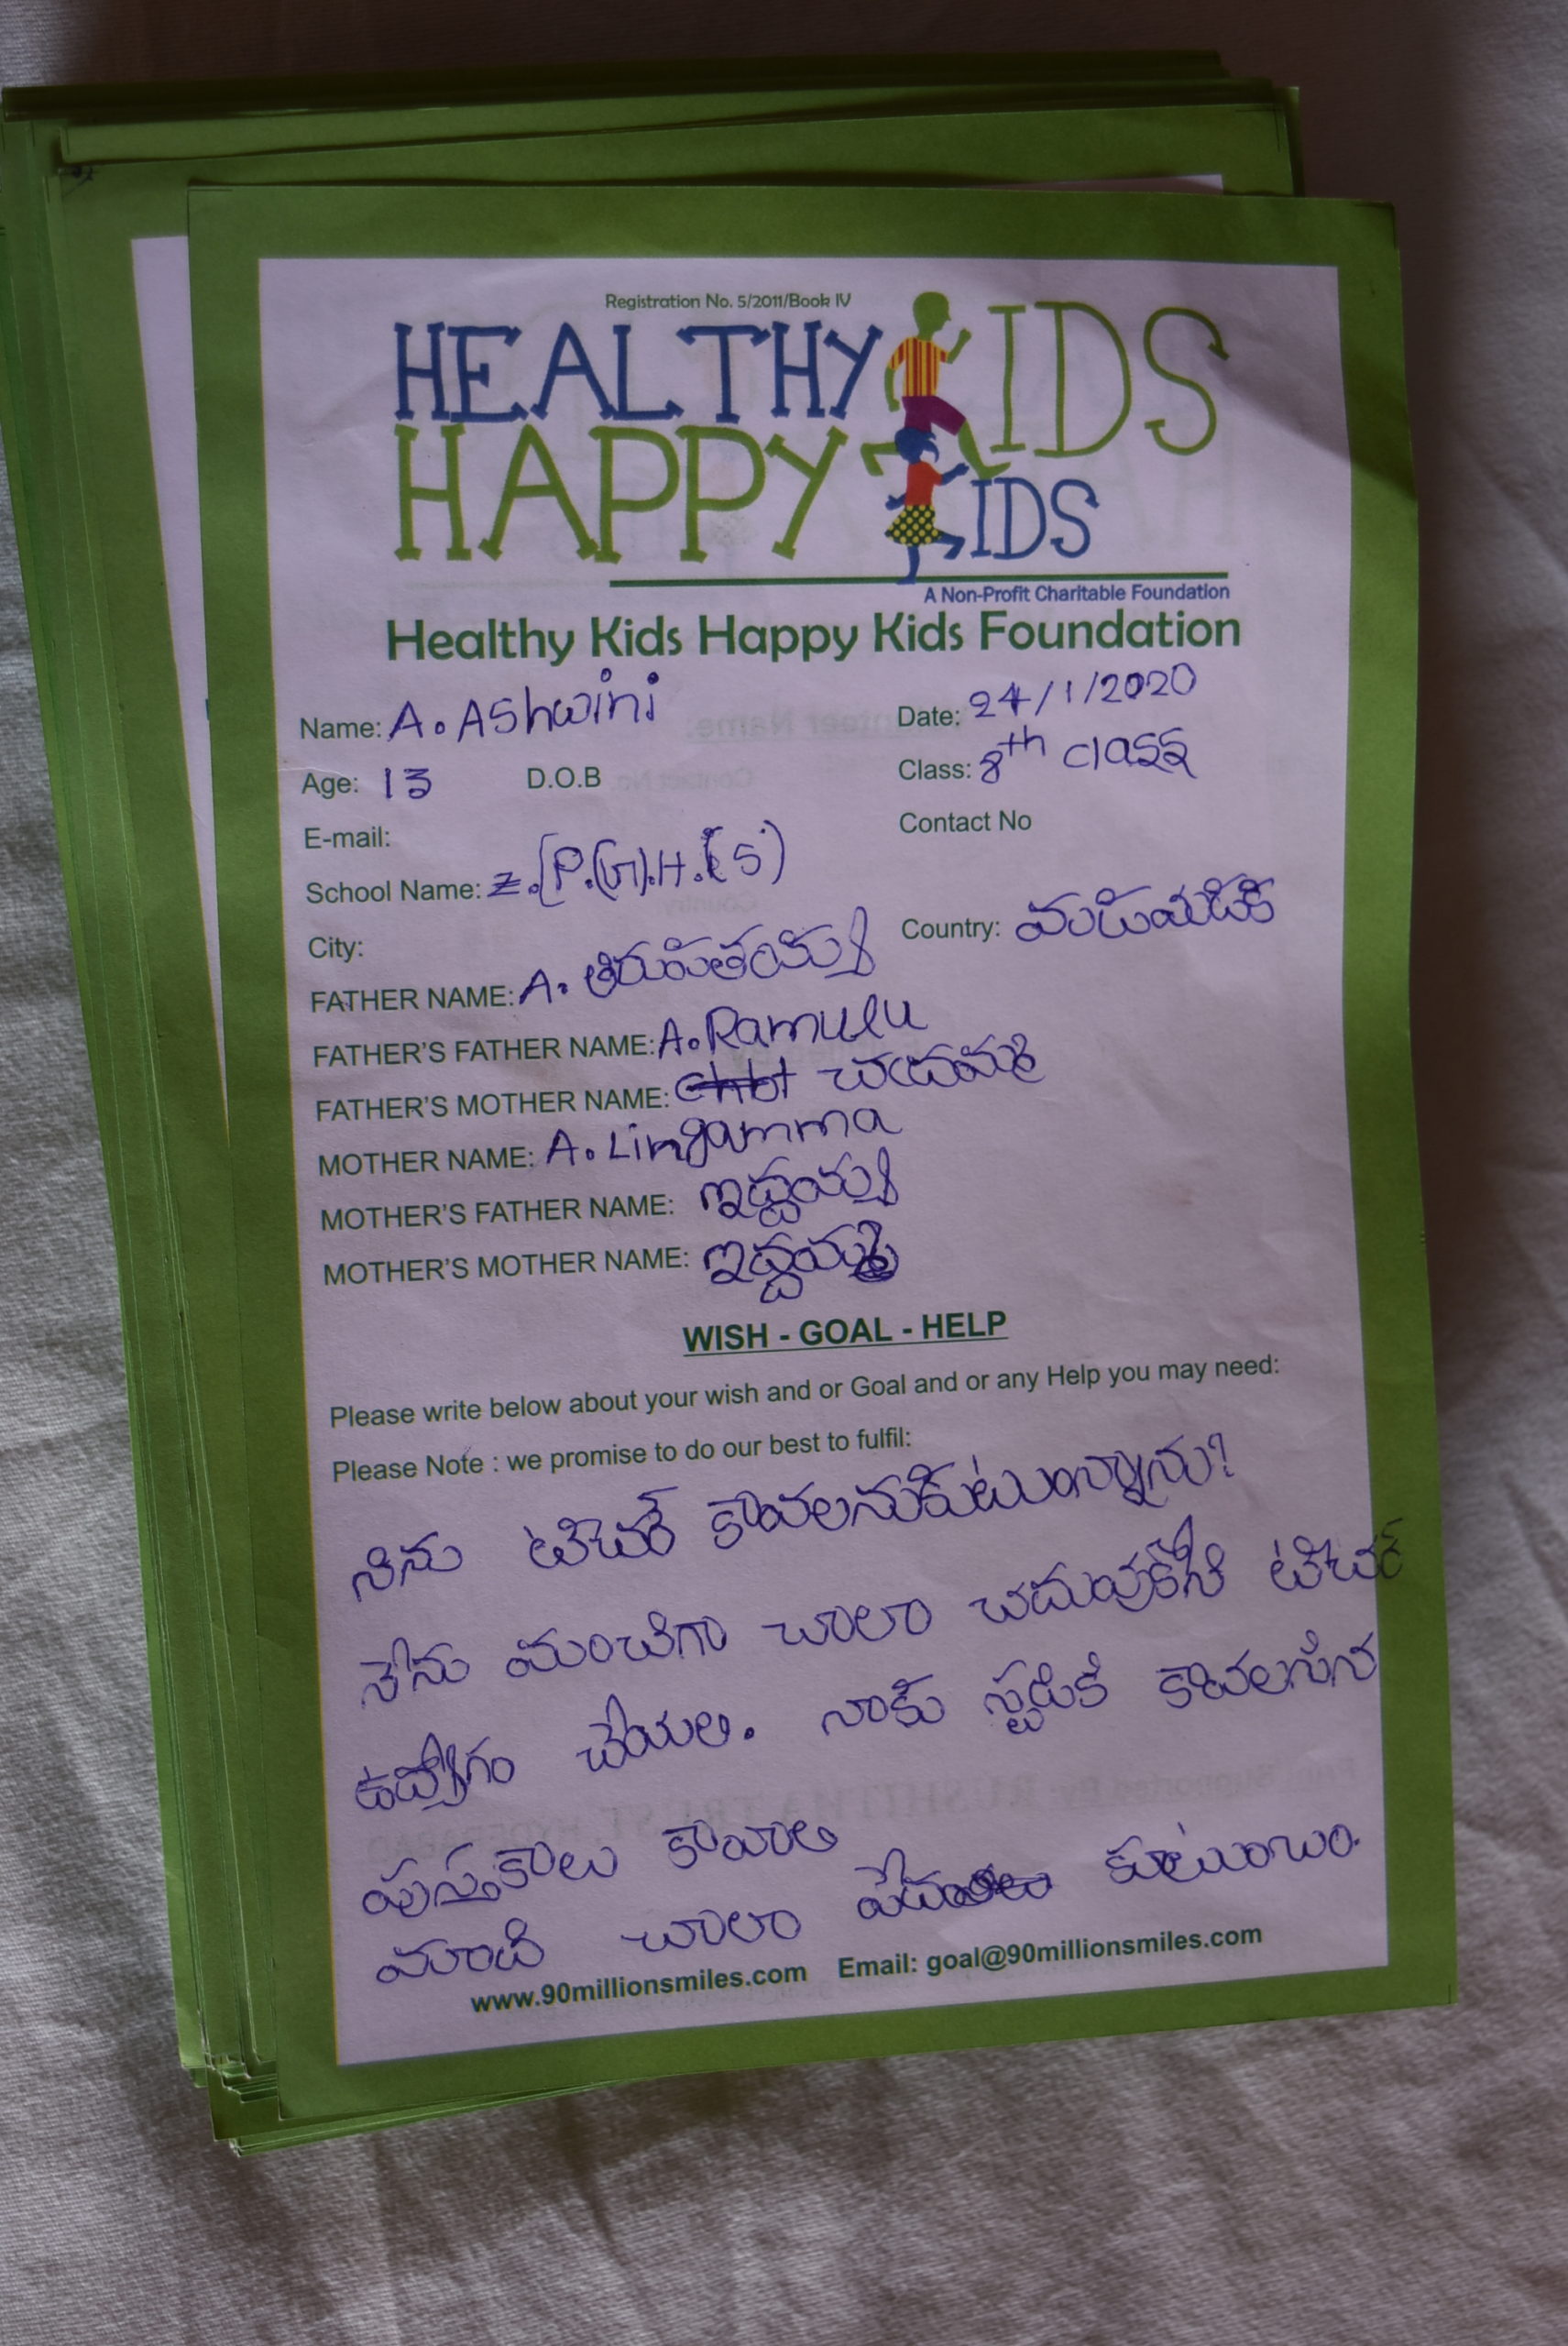 Registration No. 5/2011/Book IV
HEALTHY KIDS
HAPPY KIDS
A Non-Profit Charitable Foundation
Healthy Kids Happy Kids Foundation
Name: A. Ashwini Date: 24/1/2020
Age: 13 D.O.B Class: 8th class
E-mail: Contact No
School Name: Z.(P.(G).H.(S)
City: Country:
FATHER NAME: A. తిరుపతయ్య
FATHER'S FATHER NAME: A. Ramulu
FATHER'S MOTHER NAME:
MOTHER NAME: A. Lingamma
MOTHER'S FATHER NAME: ఇద్దయ్య
MOTHER'S MOTHER NAME: ఇద్దయ్మ
WISH - GOAL - HELP
Please write below about your wish and or Goal and or any Help you may need:
Please Note : we promise to do our best to fulfil:
నిను టిచర్ కావలనుకుటుంన్నాను?
నేను మంచిగా చాలా చదువుకోని టిచర్
ఉద్యోగం చేయలి. నాకు స్టడికి కావలసిన
పుస్తకాలు కావాలి
మాది చాలా పేద కుటుంబం.
www.90millionsmiles.com Email: goal@90millionsmiles.com